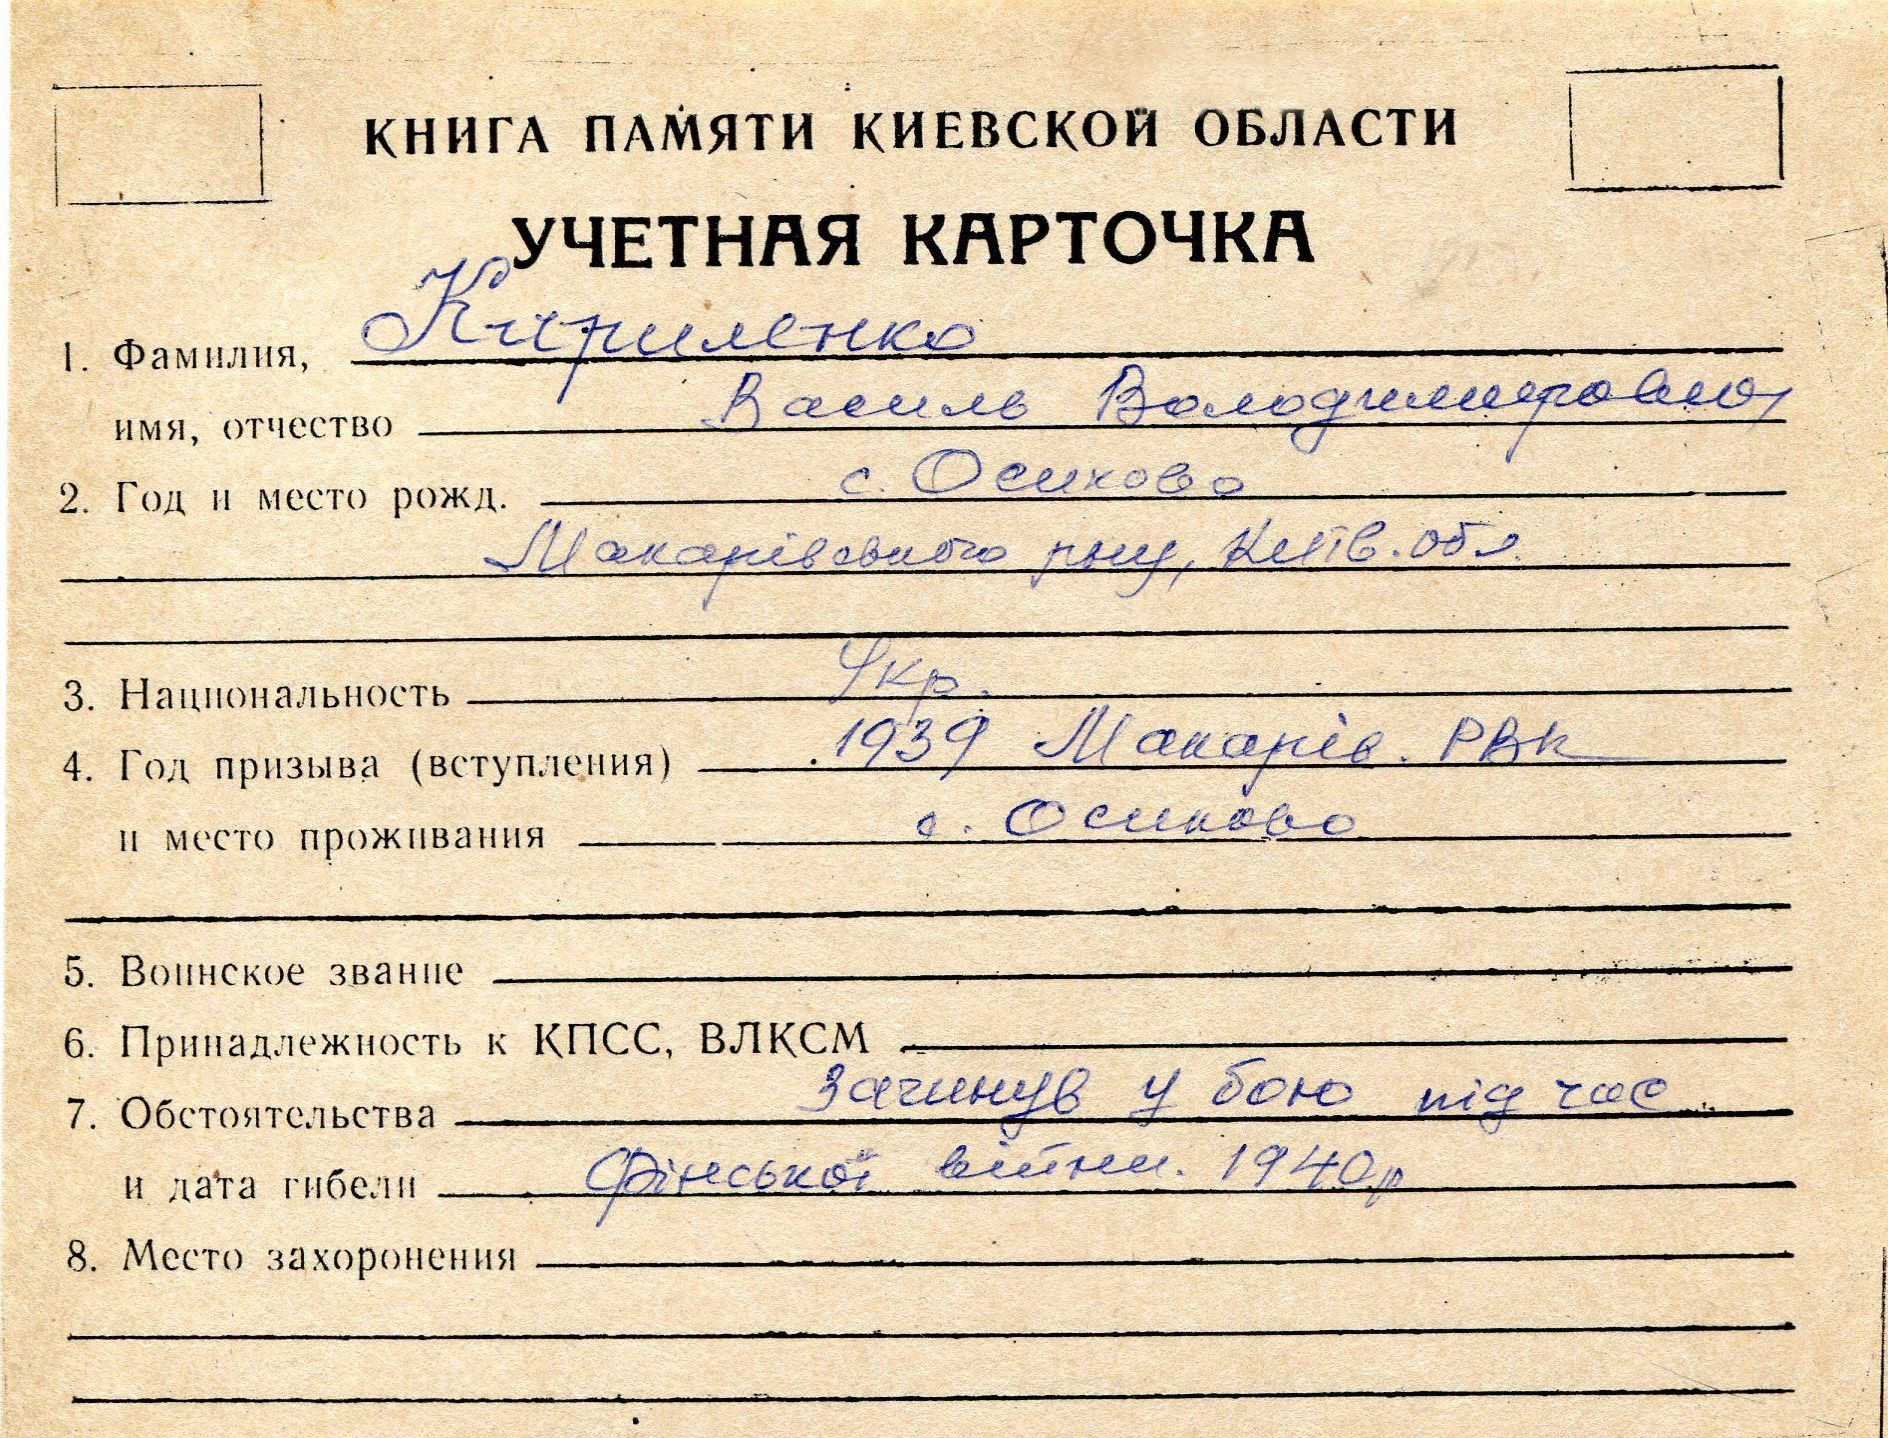 КНИГА ПАМЯТИ КИЕВСКОЙ ОБЛАСТИ
УЧЕТНАЯ КАРТОЧКА
1. Фамилия, Кириленко
имя, отчество Василь Володимирович
2. Год и место рожд. с. Осиково
Макарівського р-ну, Київ. обл.
3. Национальность Укр.
4. Год призыва (вступления) 1939 Макарів. РВК
и место проживания с. Осиково
5. Воинское звание
6. Принадлежность к КПСС, ВЛКСМ
7. Обстоятельства Загинув у бою під час
и дата гибели Фінської війни. 1940р
8. Место захоронения